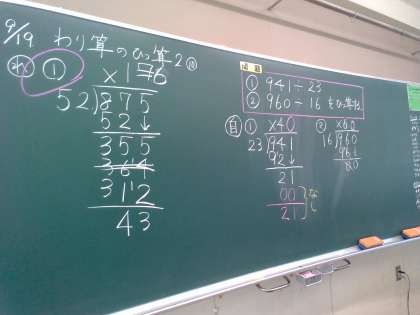 9/19 わり算のひっ算2
れ ① ×1 7 6
52)875
52↓
355
364
312
43
問題
① 941÷23
② 960÷16
自 ① ×40
23)941
92↓
21
00
21
なし
② ×60
16)960
96↓
80